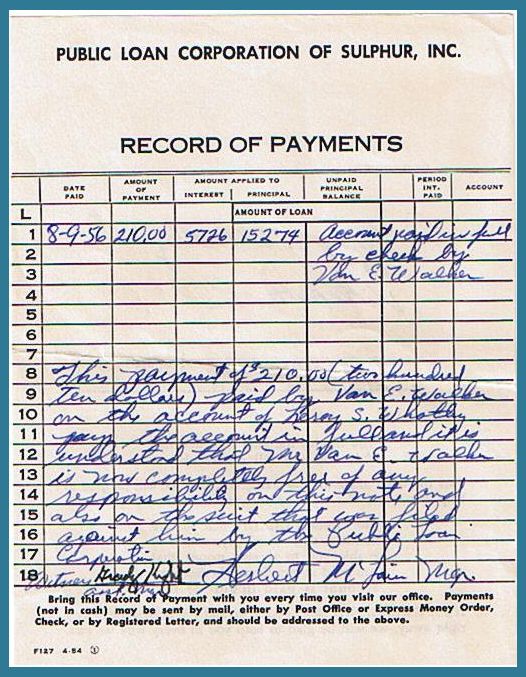 PUBLIC LOAN CORPORATION OF SULPHUR, INC.
RECORD OF PAYMENTS
DATE PAID AMOUNT OF PAYMENT AMOUNT APPLIED TO INTEREST PRINCIPAL UNPAID PRINCIPAL BALANCE PERIOD INT. PAID ACCOUNT
L AMOUNT OF LOAN
1 8-9-56 210.00 5726 15274 Account paid in full
2 by check by
3 Van E. Walker
4
5
6
7
8 This payment of $210.00 (two hundred
9 Ten dollars) paid by Van E. Walker
10 on the account of Leroy S. Whatley
11 pays the account in full and it is
12 understood that Mr Van E. Walker
13 is now completely free of any
14 responsibility on this note and
15 also on the suit that was filed
16 against him by the Public Loan
17 Corporation
18 Witness Grady Herbert McLain Mgr.
Bring this Record of Payment with you every time you visit our office. Payments
(not in cash) may be sent by mail, either by Post Office or Express Money Order,
Check, or by Registered Letter, and should be addressed to the above.
F127 4-54